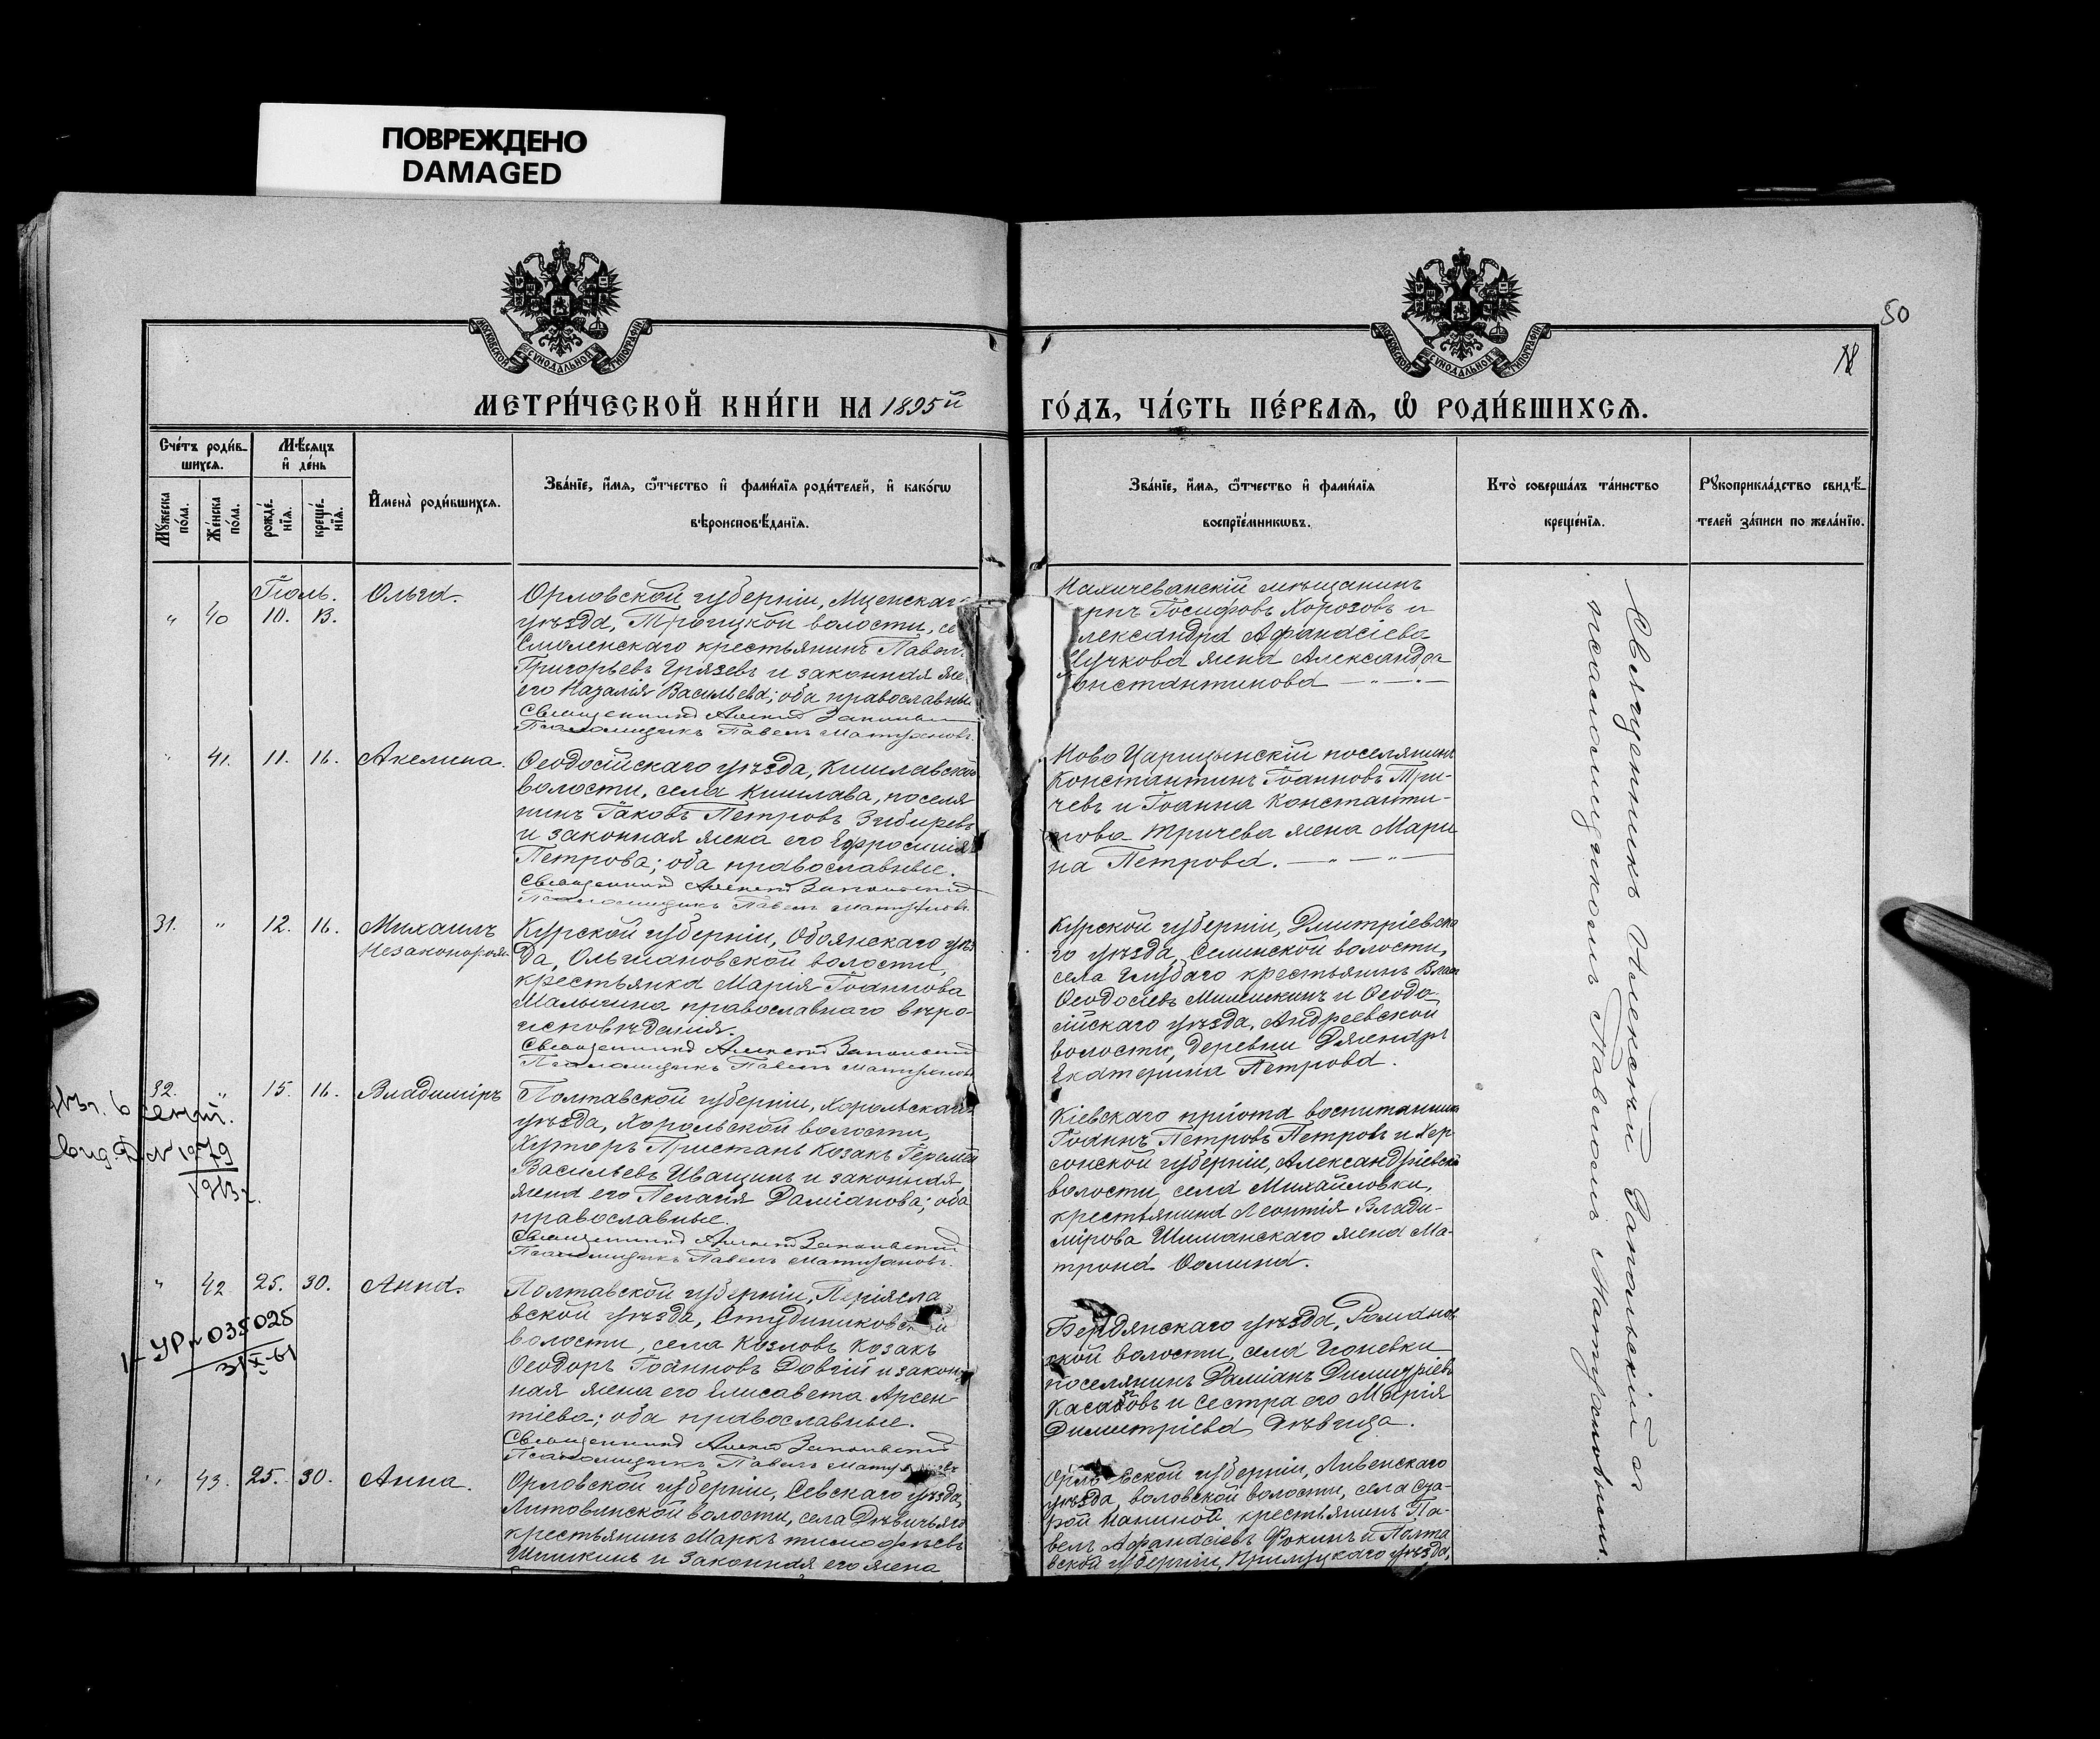 ПОВРЕЖДЕНО
DAMAGED
50
МОСКОВСКОЙ СУНОДАЛЬНОЙ ТИПОГРАФІИ
МОСКОВСКОЙ СУНОДАЛЬНОЙ ТИПОГРАФІИ
МЕТРИ́ЧЕСКОЙ КНИ́ГИ НА 1895й
ГО́ДЪ, ЧА́СТЬ ПЕ́РВАѦ, Ѡ РОДИ́ВШИХСѦ.
Сче́тъ роди́в-
шихсѧ.
Мꙋжеска по́ла.
Же́нска по́ла.
Мѣ́сѧцъ
и҆ де́нь
рожде́-
нїѧ.
креще́-
нїѧ.
И҆мена̀ роди́вшихсѧ.
Зва́нїе, и҆́мѧ, ѻ҆́тчество и҆ фами́лїѧ роди́телей, и҆ како́гѡ
вѣроисповѣ́данїѧ.
Зва́нїе, и҆́мѧ, ѻ҆́тчество и҆ фами́лїѧ
воспрїе́мникѡвъ.
Кто̀ соверша́лъ та́инство
креще́нїѧ.
Рꙋкоприкла́дство свидѣ́-
телей за́писи по жела́нїю.
Іюль.
" 40 10. 13. Ольга.
Орловской губерніи, Мценскаг
уѣзда, Троицкой волости, се
Смоленскаго крестьянинъ Павел
Григорьевъ Грязевъ и законная же
его Наталія Васильева; оба православны
Священникъ Алексій Запольскій
Псаломщикъ Павелъ Матухновъ.
Нахичеванскій мѣщанинъ
Іосифовъ Хорозовъ и
лександра Афанасіева
жена Александра
онстантинова
" 41. 11. 16. Акелина.
Ѳеодосійскаго уѣзда, Кишлавской
волости, села Кишлава, поселя
нинъ Іаковъ Петровъ Зибиревъ
и законная жена его Ефросинія
Петрова; оба православные.
Священникъ Алексій Запольскій
Псаломщикъ Павелъ Матухновъ
Ново Царицынскій поселянинъ
Константинъ Іоанновъ Три-
чевъ и Іоанна Константи-
нова Тричева жена Мари
на Петрова.
31. " 12. 16. Михаилъ
Незаконорож.
Курской губерніи, Обоянскаго уѣз
да, Ольшановской волости,
крестьянка Марія Іоаннова
Малыхина православнаго вѣро-
исповѣданія.
Священникъ Алексій Запольскій
Псаломщикъ Павелъ Матухновъ
Курской губерніи, Дмитріевска
го уѣзда, Селинской волости,
села Глубаго крестьянинъ Влас
Ѳеодосіевъ Милешкинъ и Ѳеодо-
сійскаго уѣзда, Андреевской
волости, деревни
Екатерина Петрова.
32. " 15. 16. Владиміръ
Полтавской губерніи, Хорольскаго
уѣзда, Хорольской волости,
Хуторъ Пристань Козакъ Іеремія
Васильевъ Иващинъ и законная
жена его Пелагія Даміанова; оба
православные.
Священникъ Алексій Запольскій
Псаломщикъ Павелъ Матухновъ.
Кіевскаго пріюта воспитанникъ
Іоаннъ Петровъ Петровъ и Хер-
сонской губерніи, Александріевской
волости, села Михайловки,
крестьянина Леонтія Влади-
мірова Шиманскаго жена Ма-
трона Ѳомина.
вид. № 1979
1913г.
" 42 25. 30. Анна.
Полтавской губерніи, Періясла
вской уѣзда, Студиниковской
волости, села Козловъ Козакъ
Ѳеодоръ Іоанновъ Довгій и закон-
ная жена его Елисавета Арсен-
тіева; оба православные.
Священникъ Алексій Запольскій
Псаломщикъ Павелъ
Бердянскаго уѣзда, Романов
ской волости, села
поселянинъ Даміанъ Димитріевъ
и сестра его Марія
Димитріева дѣвица.
1-УР № 035025
31/X-61
" 43. 25. 30. Анна.
Орловской губерніи, Севскаго уѣзда,
Литовинской волости, села Дѣвичьяго
крестьянинъ Маркъ Тимофѣевъ
Шишкинъ и законная его жена
Орловской губерніи, Ливенскаго
уѣзда, воловской волости, села Ста-
рой крестьянинъ Па-
велъ Афанасіевъ Фокинъ и Полта
вской губерніи, Прилуцкаго уѣзда,
Священникъ Алексѣй Запольскій съ
псаломщикомъ Павломъ Матухновымъ.